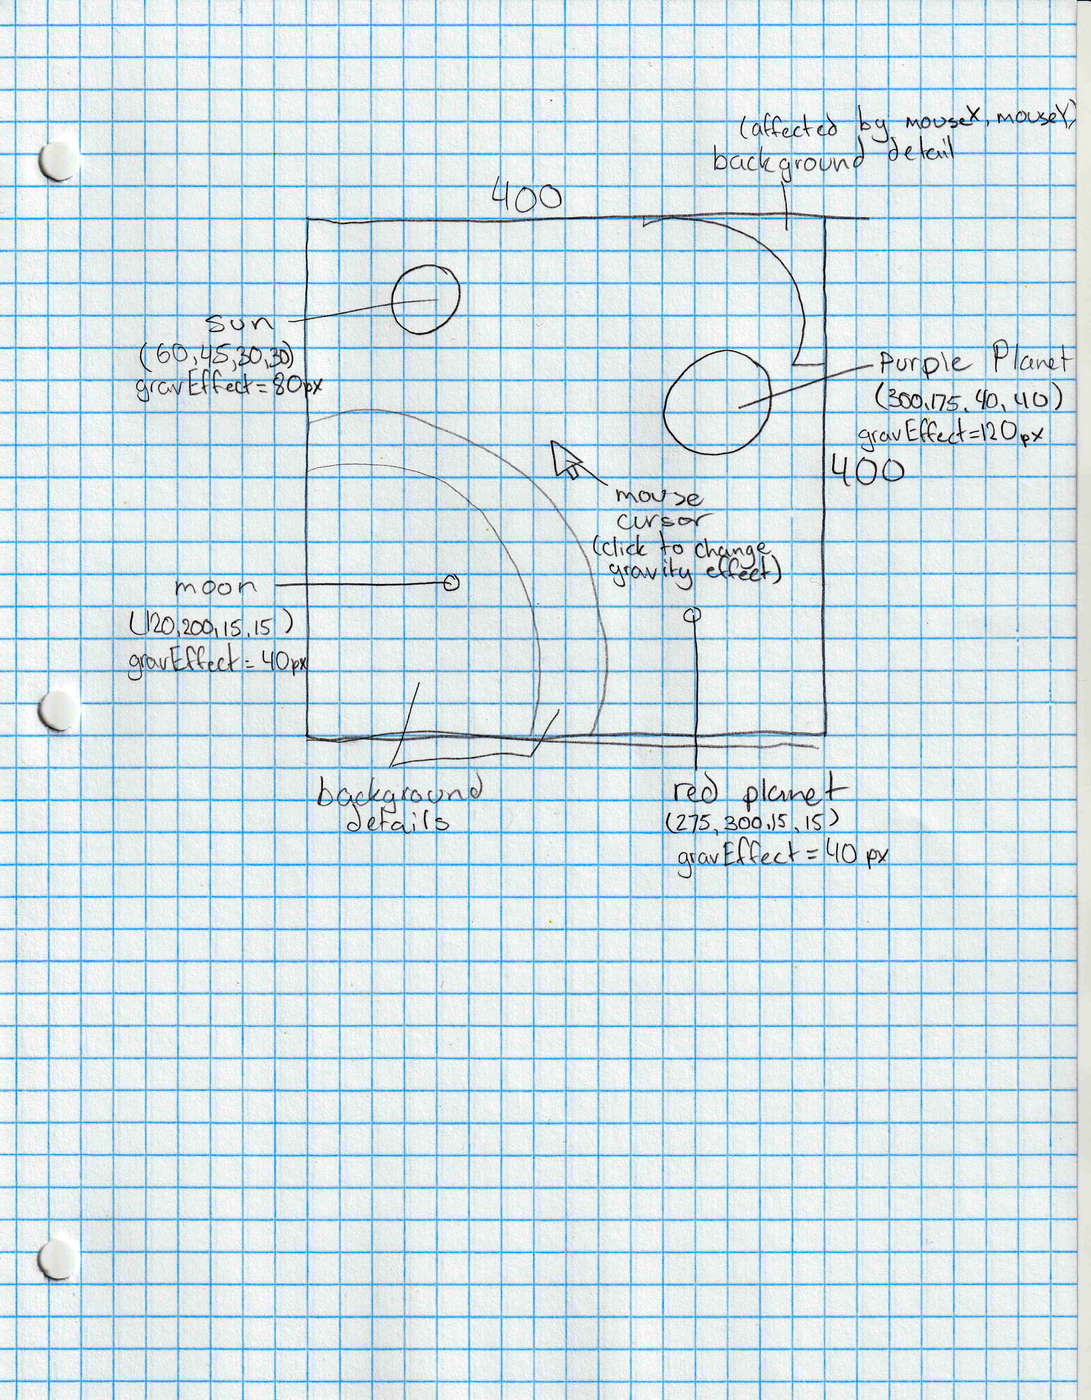 (affected by mouseX, mouseY)
background detail
400
sun
(60,45,30,30)
gravEffect=80px
Purple Planet
(300,175,40,40)
gravEffect=120px
400
mouse
cursor
(click to change
gravity effect)
moon
(120,200,15,15)
gravEffect=40px
background
details
red planet
(275,300,15,15)
gravEffect=40px